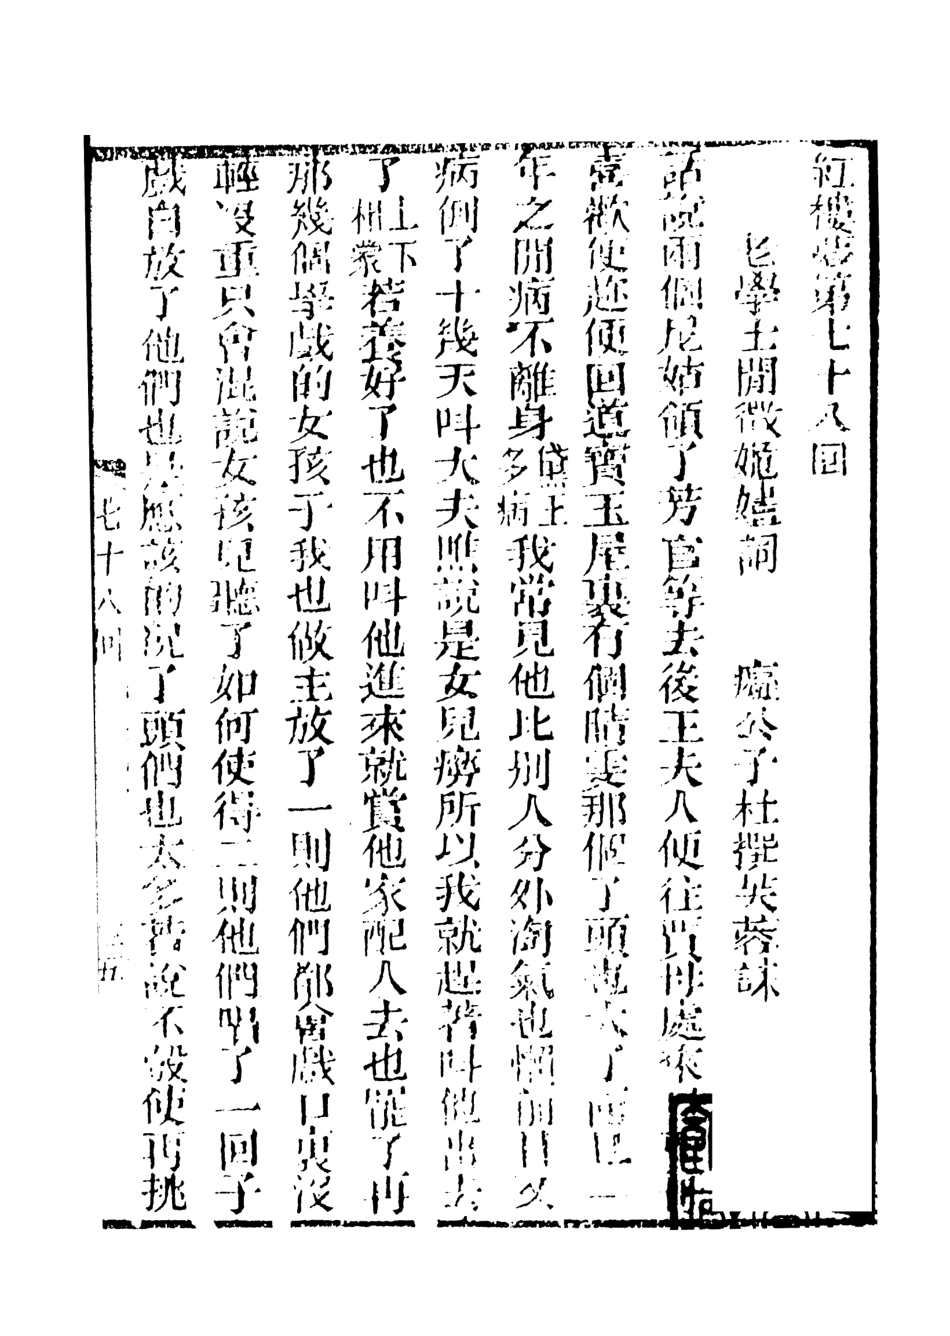 紅樓夢第七十八回
老學士閒徵姽嫿詞　癡公子杜撰芙蓉誄
話說兩個尼姑領了芳官等去後王夫人便往賈母處來
喜歡便趂便回道寶玉屋裏有個晴雯那個丫頭也大了而且一
年之間病不離身黛上多病我常見他比別人分外淘氣也懶前日又
病倒了十幾天叫大夫瞧說是女兒癆所以我就趕着叫他出去
了上下相蒙若養好了也不用叫他進來就賞他家配人去也罷了再
那幾個學戲的女孩子我也做主放了一則他們都會戲口裏沒
輕沒重只會混說女孩兒聽了如何使得二則他們唱了一回子
戲白放了他們也是應該的況丫頭們也太多若說不彀使再挑
七十八回
五